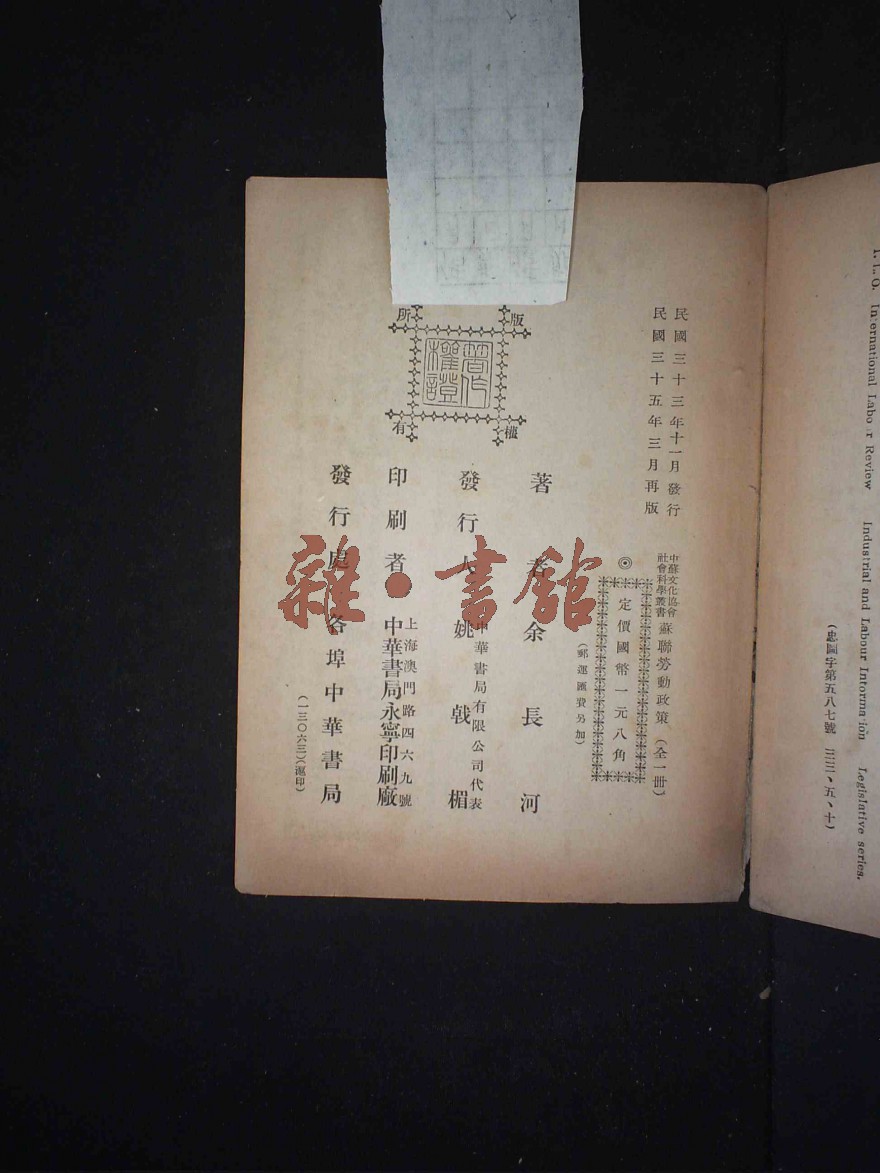 民國三十三年十一月發行
民國三十五年三月再版
中蘇文化協會
社會科學叢書
蘇聯勞動政策（全一冊）
◎定價國幣一元八角
（郵運匯費另加）
著者余長河
發行人
中華書局有限公司代表
姚戟楣
印刷者
上海澳門路四六九號
中華書局永寧印刷廠
發行處各埠中華書局
（一三〇六三）（滬印）
版權所有
著作權證
雜·書館
I. L. O. International Labour Review Industrial and Labour Information Legislative series.
（忠圖字第五八七號 三三、五、十）